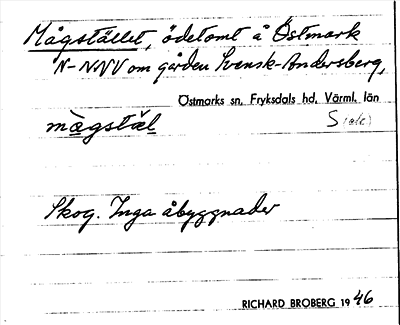 Mågstället, ödetomt å Östmark
N-NNV om gården Svensk-Andersberg,
Östmarks sn, Fryksdals hd, Värml. län
mågstäl
Skog. Inga åbyggnader
RICHARD BROBERG 1946